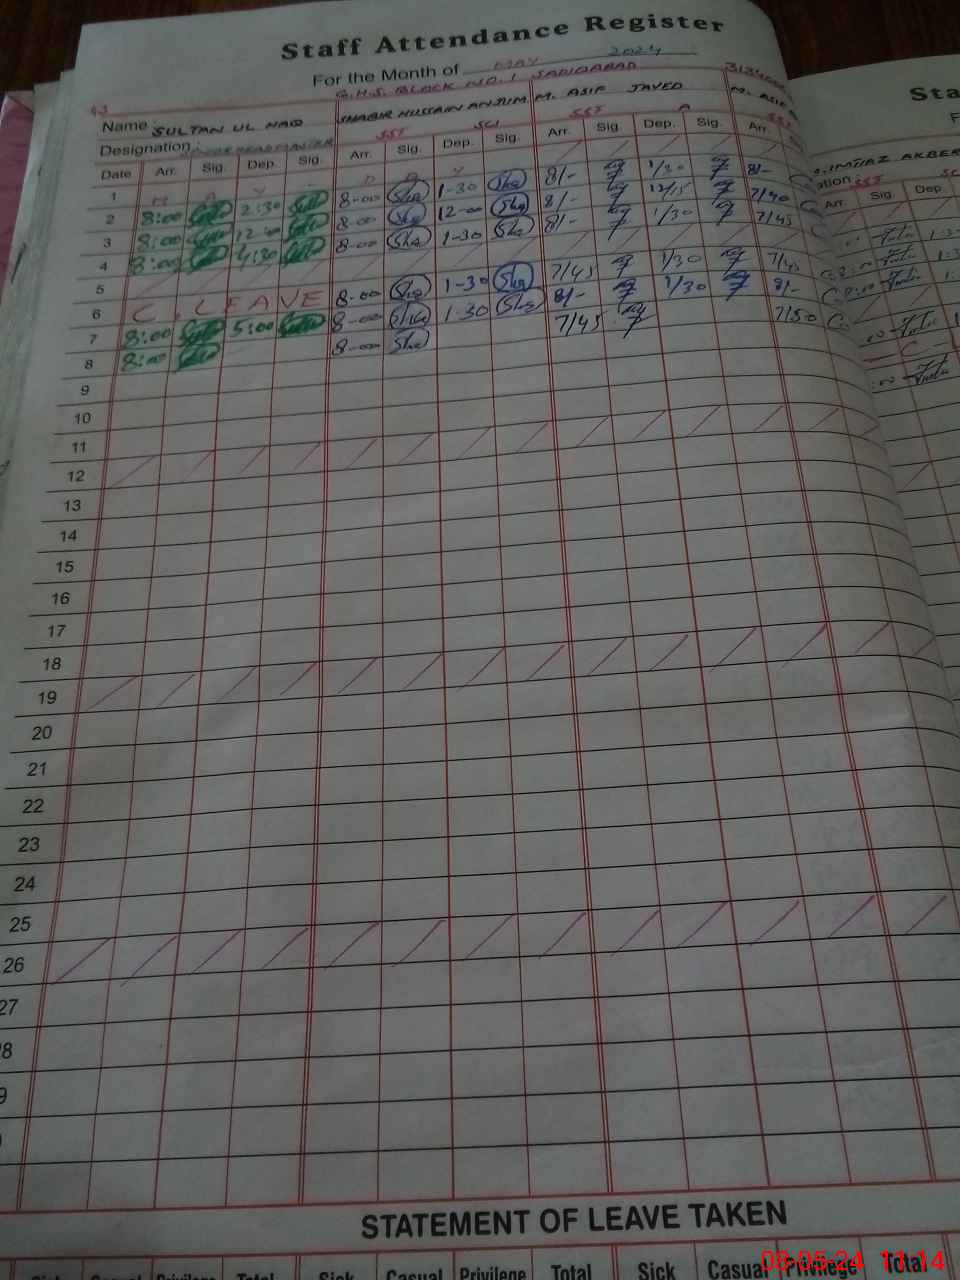 Staff Attendance Register
For the Month of MAY 2024
G.H.S. BLOCK NO. 1 SADIQABAD
Name : SULTAN UL HAQ SHABIR HUSSAIN ANJUM M. ASIF JAVED M. ASIF
Designation : SENIOR HEADMASTER SST SCI SST A SST
Date Arr. Sig. Dep. Sig. Arr. Sig. Dep. Sig. Arr. Sig. Dep. Sig. Arr.
1 M A Y D A Y
2 8:00 2:30 8-00 Sha 1-30 Sha 8/- 1/30 8/-
3 8:00 12:00 8-00 Sha 12-00 Sha 8/- 12/15 7/40
4 8:00 4:30 8-00 Sha 1-30 Sha 8/- 1/30 7/45
5
6 C. LEAVE 8-00 Sha 1-30 Sha 7/45 1/30 7/45
7 8:00 5:00 8-00 Sha 1-30 Sha 8/- 1/30 8/-
8 8:00 8-00 Sha 7/45 7/50
9
10
11
12
13
14
15
16
17
18
19
20
21
22
23
24
25
26
27
STATEMENT OF LEAVE TAKEN
Sick Casual Privilege Total Sick Casual Privilege Total Sick Casual Privilege Total
Sta
IMTIAZ AKBER
SST SC
Arr. Sig. Dep
08-05-24 11:14